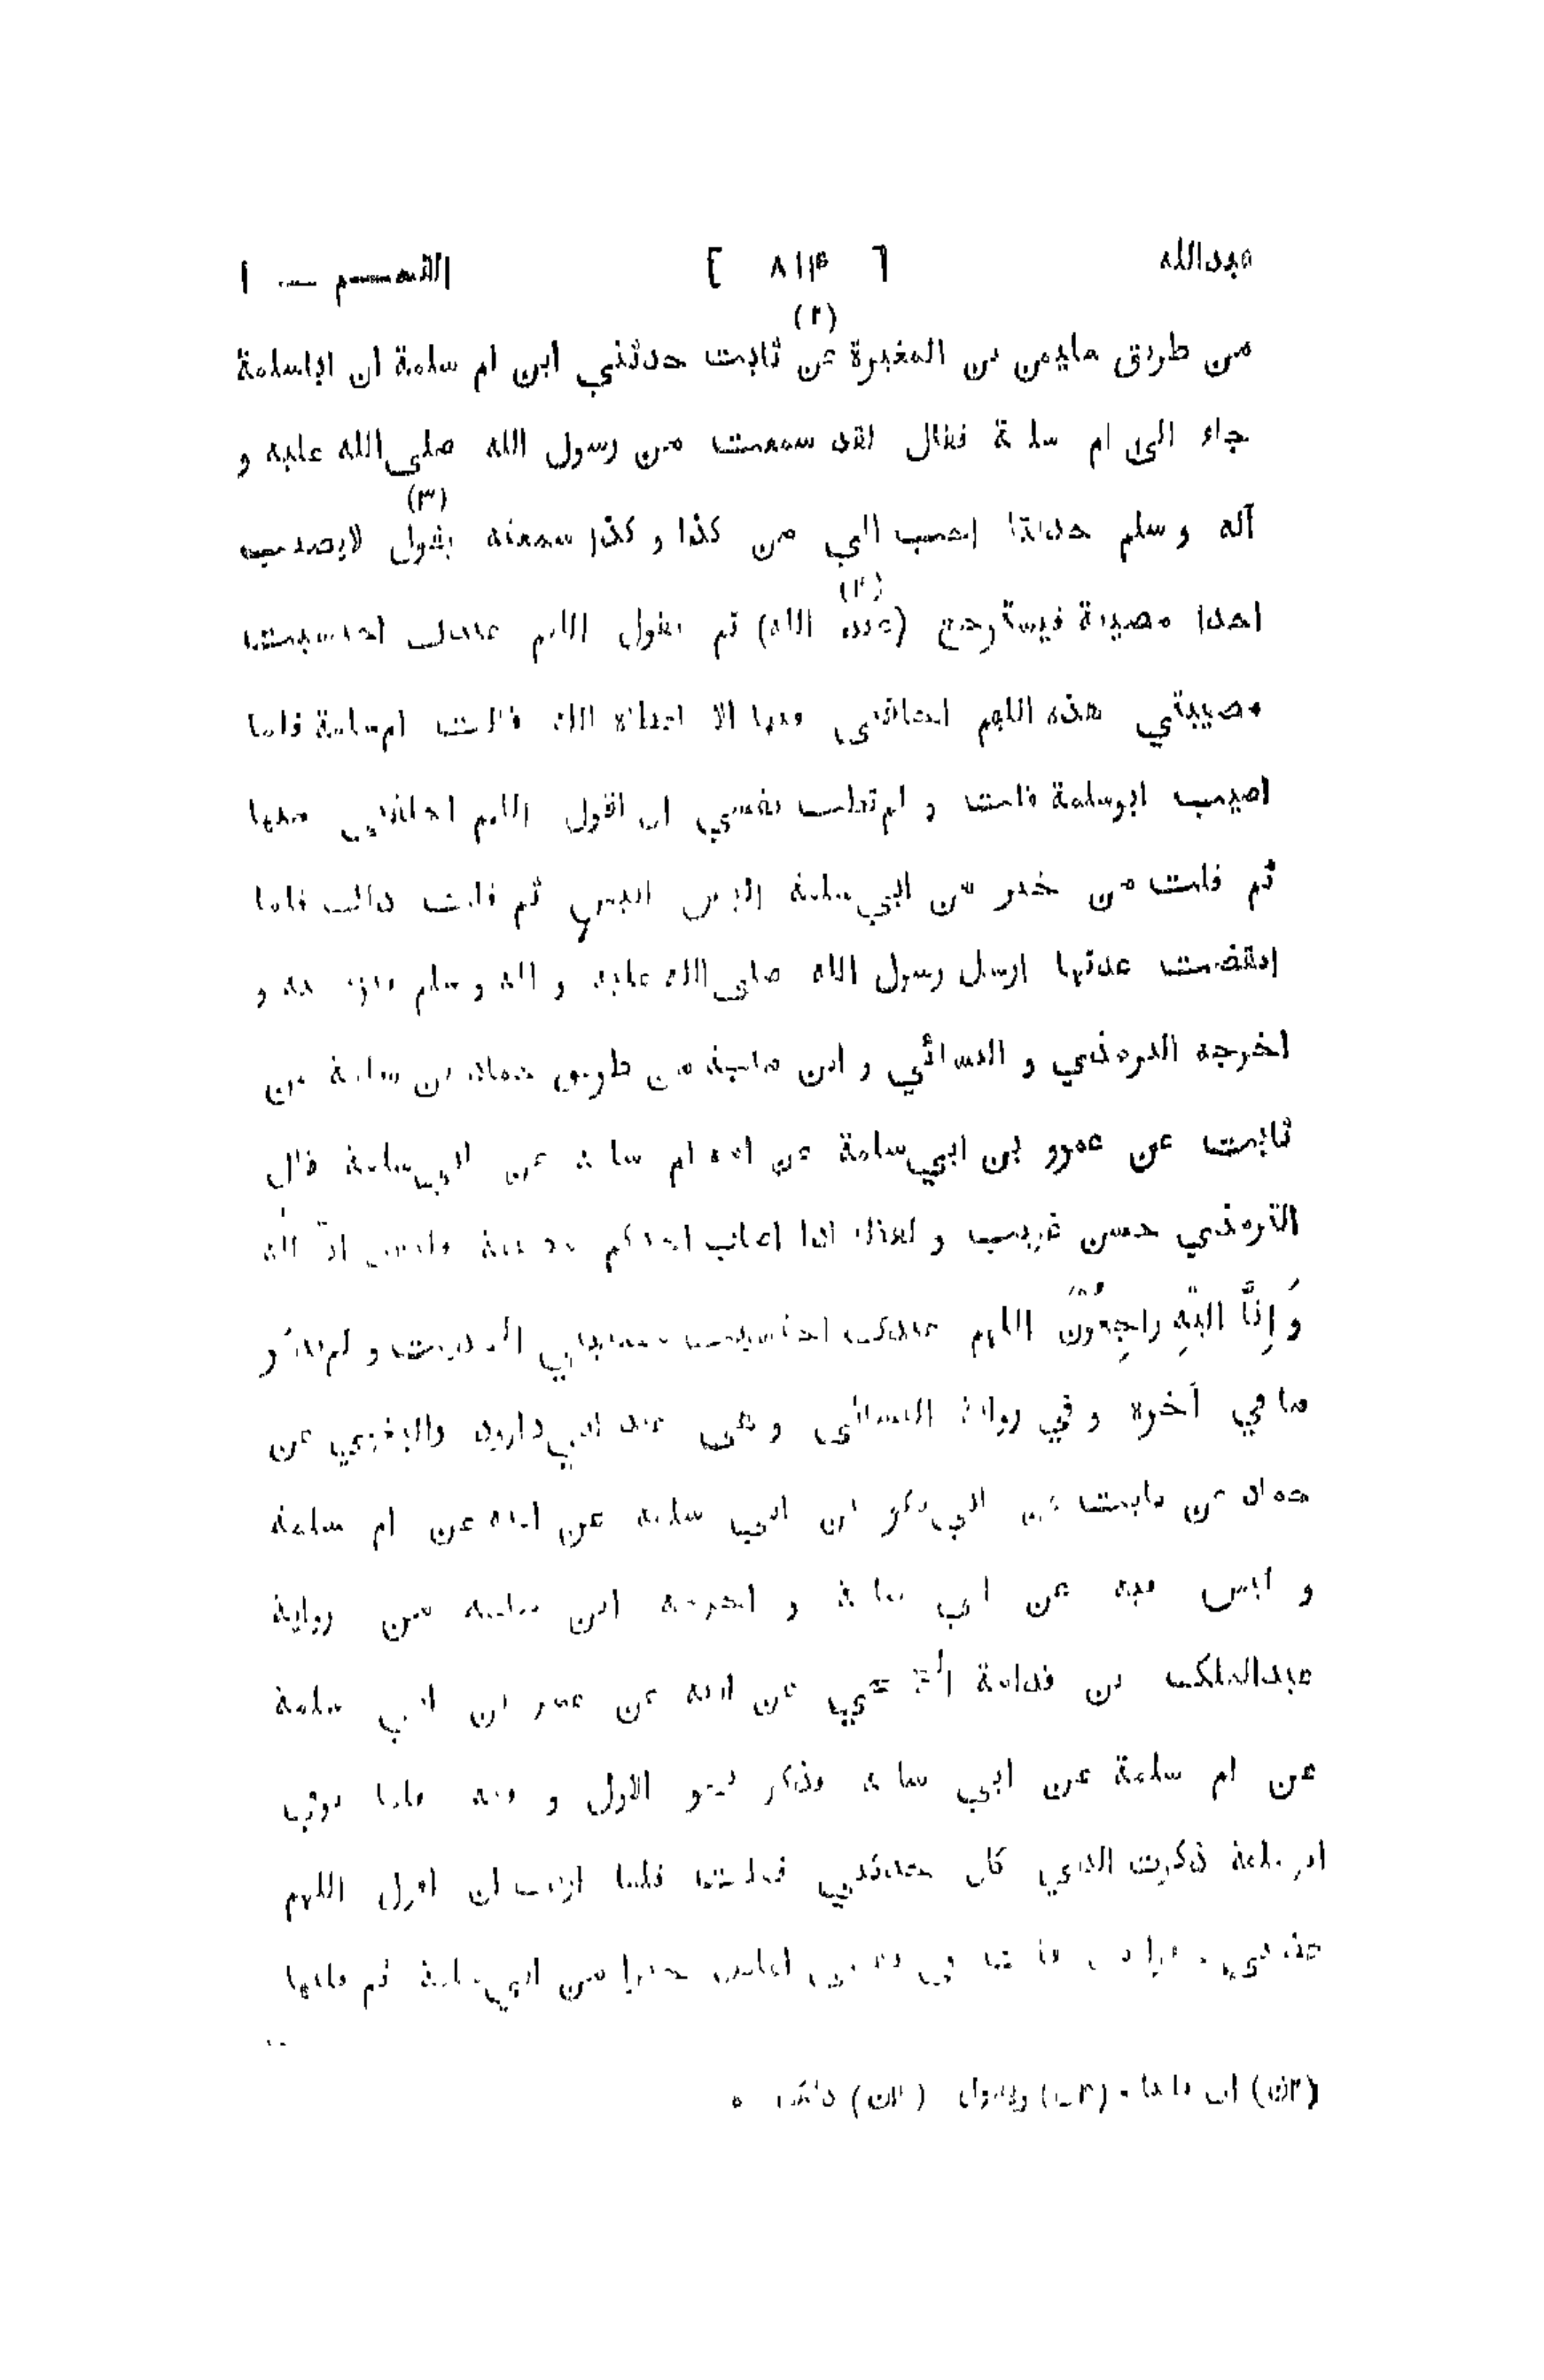 عبدالله [ ٨١٣ ] القســم — ١
من طريق سليمن بن المغيرة عن (٢) ثابت حدثني ابن ام سلمة ان اباسلمة
جاء الى ام سلمة فقال لقد سمعت من رسول الله صلى الله عليه و
آله و سلم حديثا احب الي من كذا و كذا سمعته يقول (٣) لايصيب
احدا مصيبة فيسترجع (عند الله) ثم يقول اللهم عندك احتسبت
مصيبتي هذه اللهم اخلفني منها الا اعطاه الله قالت ام سلمة فلما
اصيب ابوسلمة قلت و لم تطب نفسي ان اقول اللهم اخلفني منها
ثم قلت من خير من ابي سلمة اليس اليس ثم قلت ذلك فلما
انقضت عدتها ارسل رسول الله صلى الله عليه و اله و سلم و
اخرجه الترمذي و النسائي و ابن ماجة من طريق حماد بن سلمة عن
ثابت عن عمرو بن ابي سلمة عن امه ام سلمة عن ابي سلمة قال
الترمذي حسن غريب و لفظه اذا اصاب احدكم مصيبة فليقل انا لله
وَ إِنَّا الَيْهِ راجِعُوْنَ اللهم عندك احتسبت مصيبتي الحديث و لم يذكر
ما في آخره و في رواية النسائى و هى عند ابي داود والبغوي عن
حماد عن ثابت عن ابن ابي سلمة عن ابيه عن ام سلمة
و ليس فيه عن ابي سلمة و اخرجه ابن ماجه من رواية
عبدالملك بن قدامة عن ابيه عن عمر بن ابي سلمة
عن ام سلمة عن ابي سلمة فذكر نحو الاول و فيه فلما توفي
ابو سلمة ذكرت الذي كان حدثني فقلت فلما اردت ان اقول اللهم
قلت في نفسي اعاض خيرا من ابي سلمة ثم قلتها